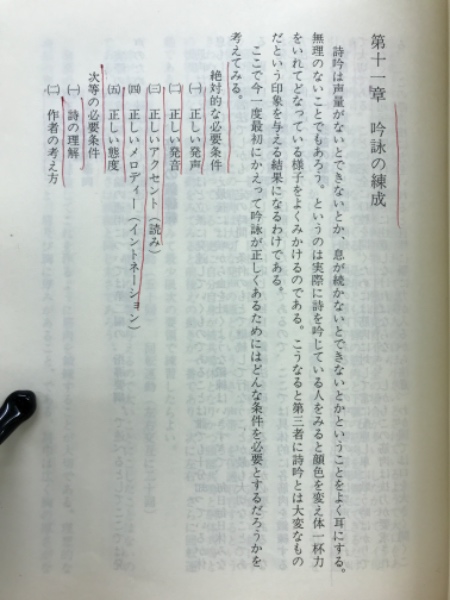 第十一章 吟詠の練成
詩吟は声量がないとできないとか、息が続かないとできないとかということをよく耳にする。
無理のないことでもあろう。というのは実際に詩を吟じている人をみると顔色を変え体一杯力
をいれてどなっている様子をよくみかけるのである。こうなると第三者に詩吟とは大変なもの
だという印象を与える結果になるわけである。
ここで今一度最初にかえって吟詠が正しくあるためにはどんな条件を必要とするだろうかを
考えてみる。
絶対的な必要条件
㈠ 正しい発声
㈡ 正しい発音
㈢ 正しいアクセント(読み)
㈣ 正しいメロディー(イントネーション)
㈤ 正しい態度
次等の必要条件
㈠ 詩の理解
㈡ 作者の考え方